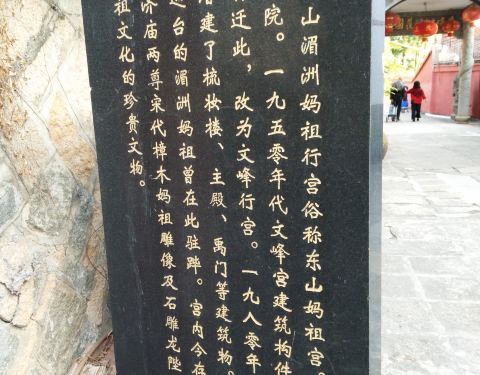 山湄洲妈祖行宫俗称东山妈祖宫。
院。一九五零年代文峰宫建筑构件
迁此，改为文峰行宫。一九八零年
建了梳妆楼、主殿、禹门等建筑物。
台的湄洲妈祖曾在此驻跸。宫内今存
济庙两尊宋代樟木妈祖雕像及石雕龙陛
祖文化的珍贵文物。